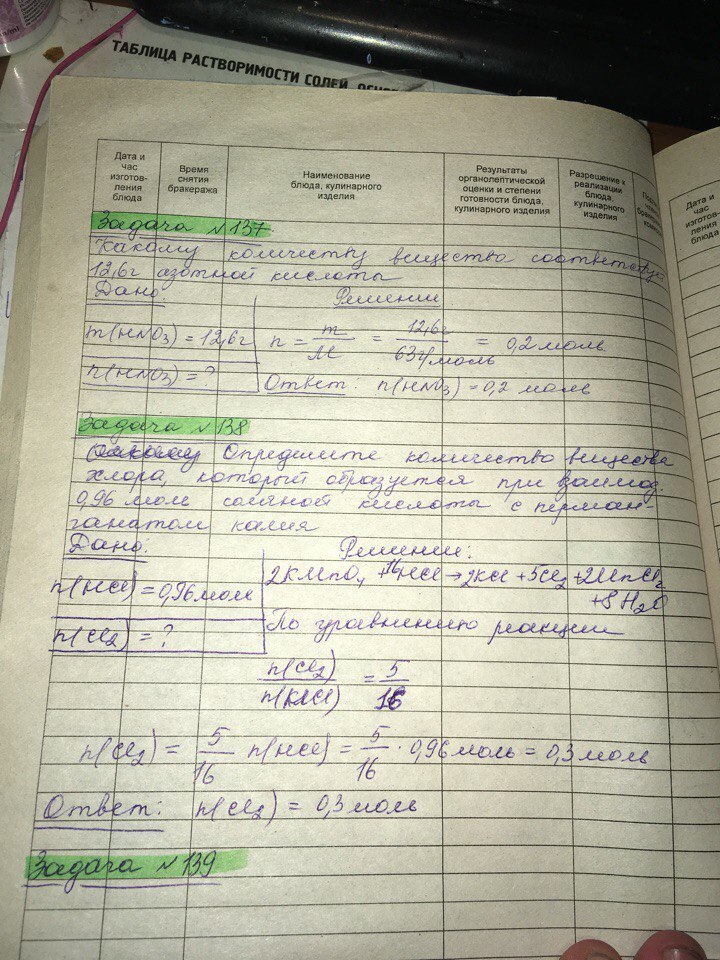 ТАБЛИЦА РАСТВОРИМОСТИ СОЛЕЙ, ОСНО
Дата и час изготов-ления блюда
Время снятия бракеража
Наименование блюда, кулинарного изделия
Результаты органолептической оценки и степени готовности блюда, кулинарного изделия
Разрешение к реализации блюда, кулинарного изделия
Дата и час изготов-ления блюда
Задача №137
Какому количеству вещества соответствует
12,6г азотной кислоты
Дано: Решение
m(HNO₃) = 12,6г n = m/M = 12,6г/63г/моль = 0,2 моль
n(HNO₃) = ? Ответ: n(HNO₃) = 0,2 моль
Задача №138
Определите количество вещества
хлора, который образуется при взаимод.
0,96 моль соляной кислоты с перман-
ганатом калия
Дано: Решение:
n(HCl) = 0,96 моль 2KMnO₄ + 16HCl → 2KCl + 5Cl₂ + 2MnCl₂
+ 8H₂O
n(Cl₂) = ? По уравнению реакции
n(Cl₂)/n(HCl) = 5/16
n(Cl₂) = 5/16 n(HCl) = 5/16 · 0,96 моль = 0,3 моль
Ответ: n(Cl₂) = 0,3 моль
Задача №139